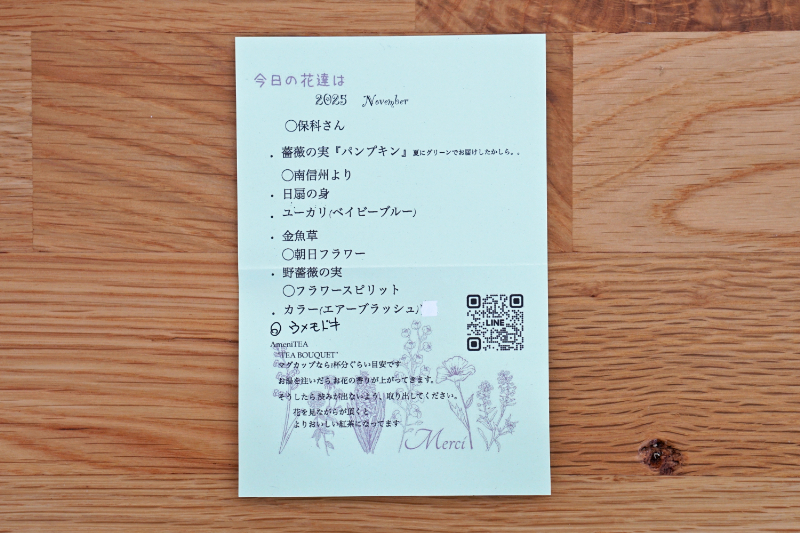 今日の花達は
2025 November
◯保科さん
・薔薇の実『パンプキン』夏にグリーンでお届けしたかしら。。
◯南信州より
・日扇の身
・ユーカリ(ベイビーブルー)
・金魚草
◯朝日フラワー
・野薔薇の実
◯フラワースピリット
・カラー(エアーブラッシュ)
ウメモドキ
LINE
AmeniTEA
"TEA BOUQUET"
マグカップなら1杯分ぐらい目安です
お湯を注いだらお花の香りが上がってきます。
そうしたら渋みが出ないよう、取り出してください。
花を見ながらが頂くと
よりおいしい紅茶になってます
Merci